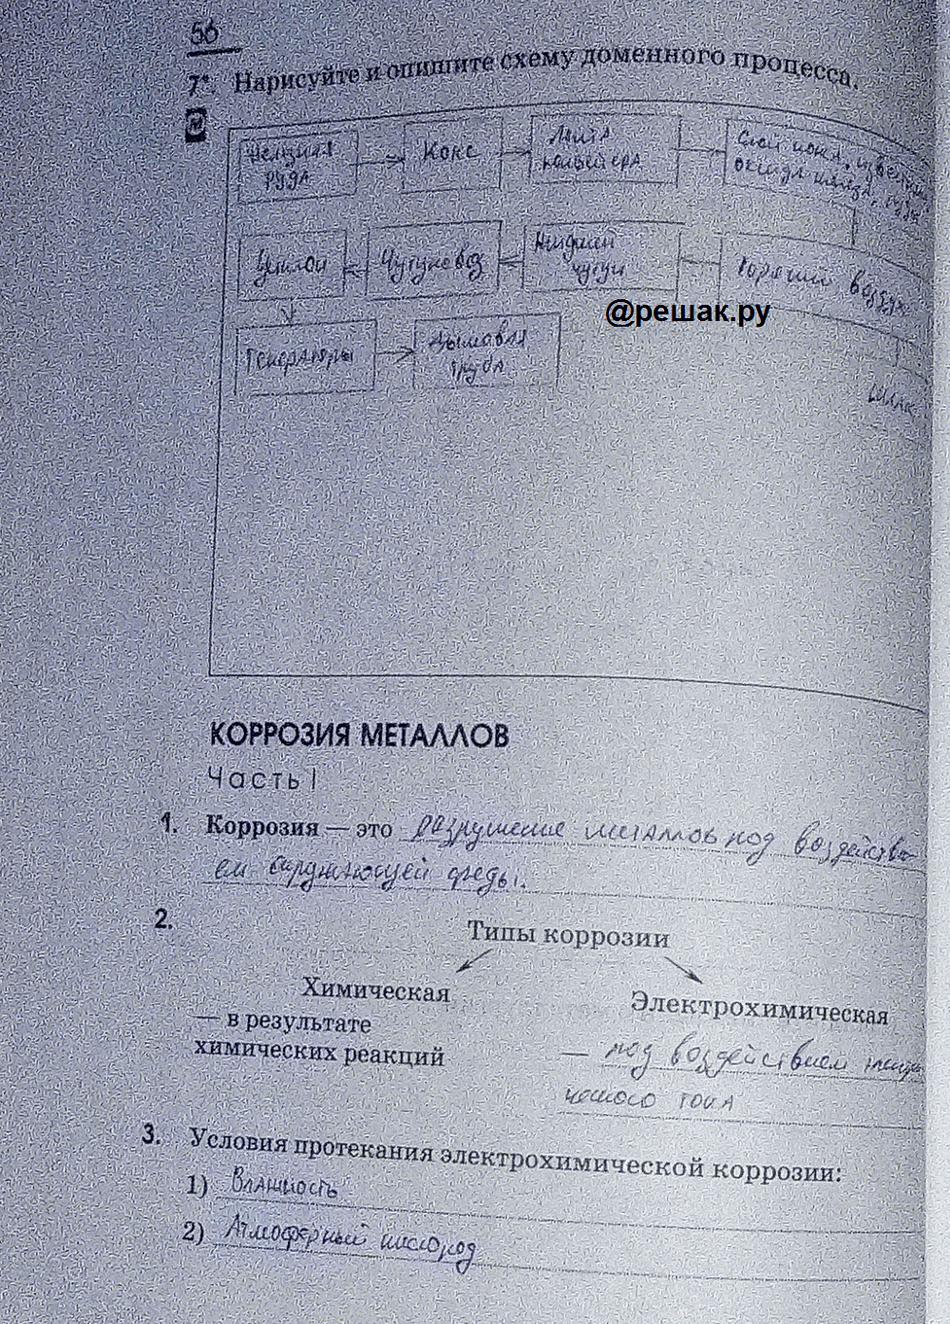 56
7*. Нарисуйте и опишите схему доменного процесса.
Железная Кокс Лента Слой кокса,
РУДА конвейера оксида
Жидкий
Чугуновоз чугун Горячий воздух
@решак.ру
Генераторы Дымовая
труба
шлак
КОРРОЗИЯ МЕТАЛЛОВ
Часть I
1. Коррозия — это разрушение металлов под воздействи-
ем окружающей среды.
2.
Типы коррозии
Химическая
Электрохимическая
— в результате
химических реакций
— под воздействием
ческого тока
3. Условия протекания электрохимической коррозии:
1) Влажность
2) Атмосферный кислород